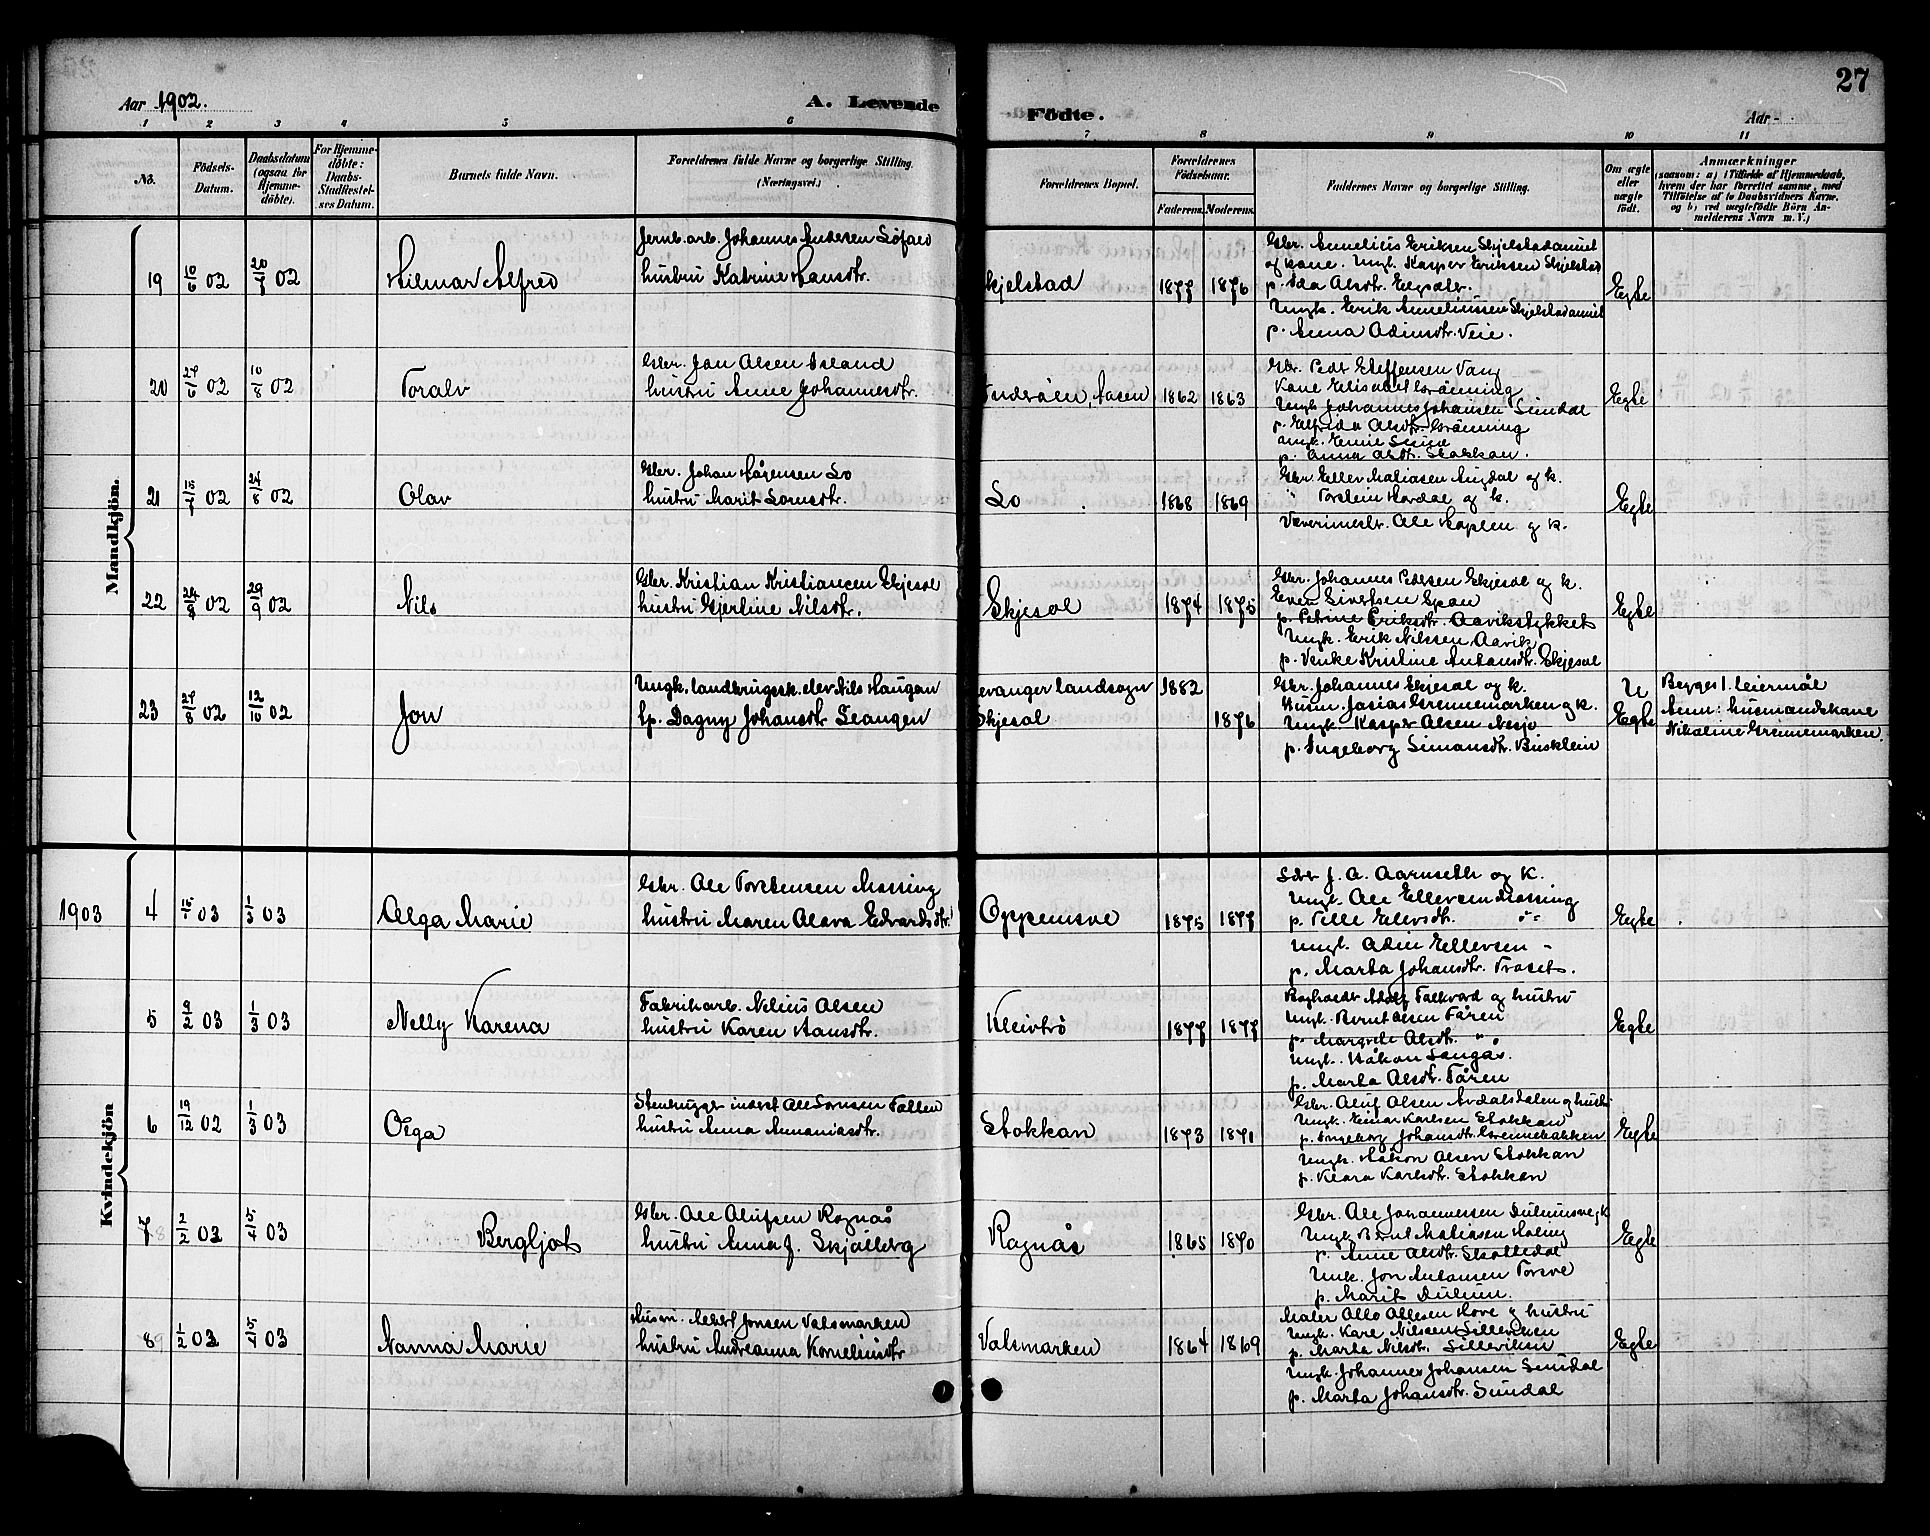 27
Aar 1902.
A. Levende Födte.
Aar
1 2 3 4 5 6 7 8 9 10 11
No.
Födsels-Datum.
Daabsdatum (ogsaa for Hjemme-döbte).
For Hjemme-döbte: Daabs-Stadfæstelses Datum.
Barnets fulde Navn.
Forældrenes fulde Navne og borgerlige Stilling. (Næringsvei.)
Forældrenes Bopæl.
Forældrenes Födselsaar.
Faderens. Moderens.
Faddernes Navne og borgerlige Stilling.
Om ægte eller uægte födt.
Anmærkninger
(saasom: a) i Tilfælde af Hjemmedaab, hvem der har forrettet samme, med Tilföielse af to Daabsvidners Navne, og b) ved uægtefödte Börn Anmelderens Navn m. V.)
Mandkjön.
19 10/6 02 20/7 02 Hilmar Alfred
Jernb.arb. Johannes Andersen Löfald
hustru Katrine Hansdtr.
Skjelstad 1877 1876
Gbr. Annelius Eriksen Skjelstadaunet
og kone. Ungk. Kasper Eriksen Skjelstad
p. Ida Olsdtr.
Ungk. Erik Anneliussen Skjelstadaunet
p. Anna Odinsdtr. Veie.
Egte
20 27/6 02 10/8 02 Toralv
Gbr. Jon Olsen Island
hustru Anne Johannesdtr.
Inderöen, Aasen 1862 1863
Gbr. Peder Steffensen Vang
Kone Elisabet Grönning
Ungk. Johannes Johansen Sundal
p. Elfrida Olsdtr. Grönning
ungk. Emil
p. Anna Olsdtr. Stokkan.
Egte
21 02 24/8 02 Olav
Gbr. Johan Hågensen Lo
hustru Marit Lornsdtr.
Lo 1868 1869
Gbr. Eller Matiasen Augdal og k.
" Torstein Hordal og k.
Væverimestr. Ole Hoplen og k.
Egte
22 02 29/9 02 Nils
Gbr. Kristian Kristiansen Skjesol
hustru Gjertine Nilsdtr.
Skjesol 1874 1875
Gbr. Johannes Pedersen Skjesol og k.
Even Sivertsen Span
p. Petrine Eriksdtr. Aavikstykket
Ungk. Erik Nilssen Aavik
p. Venke Kristine Antonsdtr. Skjesol
Egte
23 27/8 02 12/10 02 Jon
Ungk. landbrugssk. elev Nils Haugan
Gp. Dagny Johansdtr Leangen
Levanger landsogn 1882
Skjesol 1876
Gbr. Johannes Skjesol og k.
Husm. Josias Grennemarken og k.
Ungk. Kasper Olsen Nesjo
p. Ingeborg Simonsdtr. Busklein
U Egte
Begges 1. leiermål
Anm: husmandskone
Nikoline Grennemarken.
1903
Kvindekjön
4 03 1/3 03 Olga Marie
Gbr. Ole Torstensen Mossing
hustru Maren Olava Edvardsdtr.
Oppemsve 1875 1877
J. A. Aarnseth og K.
Ungk. Ole Ellersen Mossing
p. Pelle Ellersdtr. "
Ungk. Odin Ellersen -
p. Marta Johansdtr. Troset.
Egte
5 9/2 03 1/3 03 Nelly Karena
Fabrikarb. Nelius Olsen
hustru Karen Hansdtr.
Kleivtrö 1877 1877
Bogholder Adolf Falkvord og hustru
Ungk. Bernt Olsen Fåren
p. Margrete Olsdtr. "
Ungk. Håkon Langås.
p. Marta Olsdtr. Fåren
Egte
6 19/12 02 1/3 03 Olga
Stenhugger inderst Ole Larsen Følien
hustru Anna Annaniasdtr.
Stokkan 1873 1871
Gbr. Oluf Olsen Avdalsdalen og hustr
Ungk. Einar Karlsen Stokkan
p. Ingeborg Johansdtr. Grennebakken
Ungk. Håkon Olsen Stokkan
p. Klara Karlsdtr. Stokkan
Egte
7 2/2 03 5/4 03 Bergljot
Gbr. Ole Olufsen Rognås
hustru Anna J. Skjölberg
Rognås 1865 1870
Gbr. Ole Johannessen Dulumsve og k
Ungk. Bernt Matiasen Haling
p. Anne Olsdtr. Skotledal
Ungk. Jon Antonsen Torsve
p. Marit Dulum.
Egte
8 1/2 03 5/4 03 Nanna Marie
Husm. Albert Jonsen Valsmarken
hustru Andreanna Korneliusdtr
Valsmarken 1864 1869
Maler Otto Ottesen Hove og hustru
Ungk. Karl Nilsen Lillevikan
p. Marta Nilsdtr. Lillevikan
Ungk. Johannes Johansen Sundal
p. Marta Johansdtr. Sundal
Egte